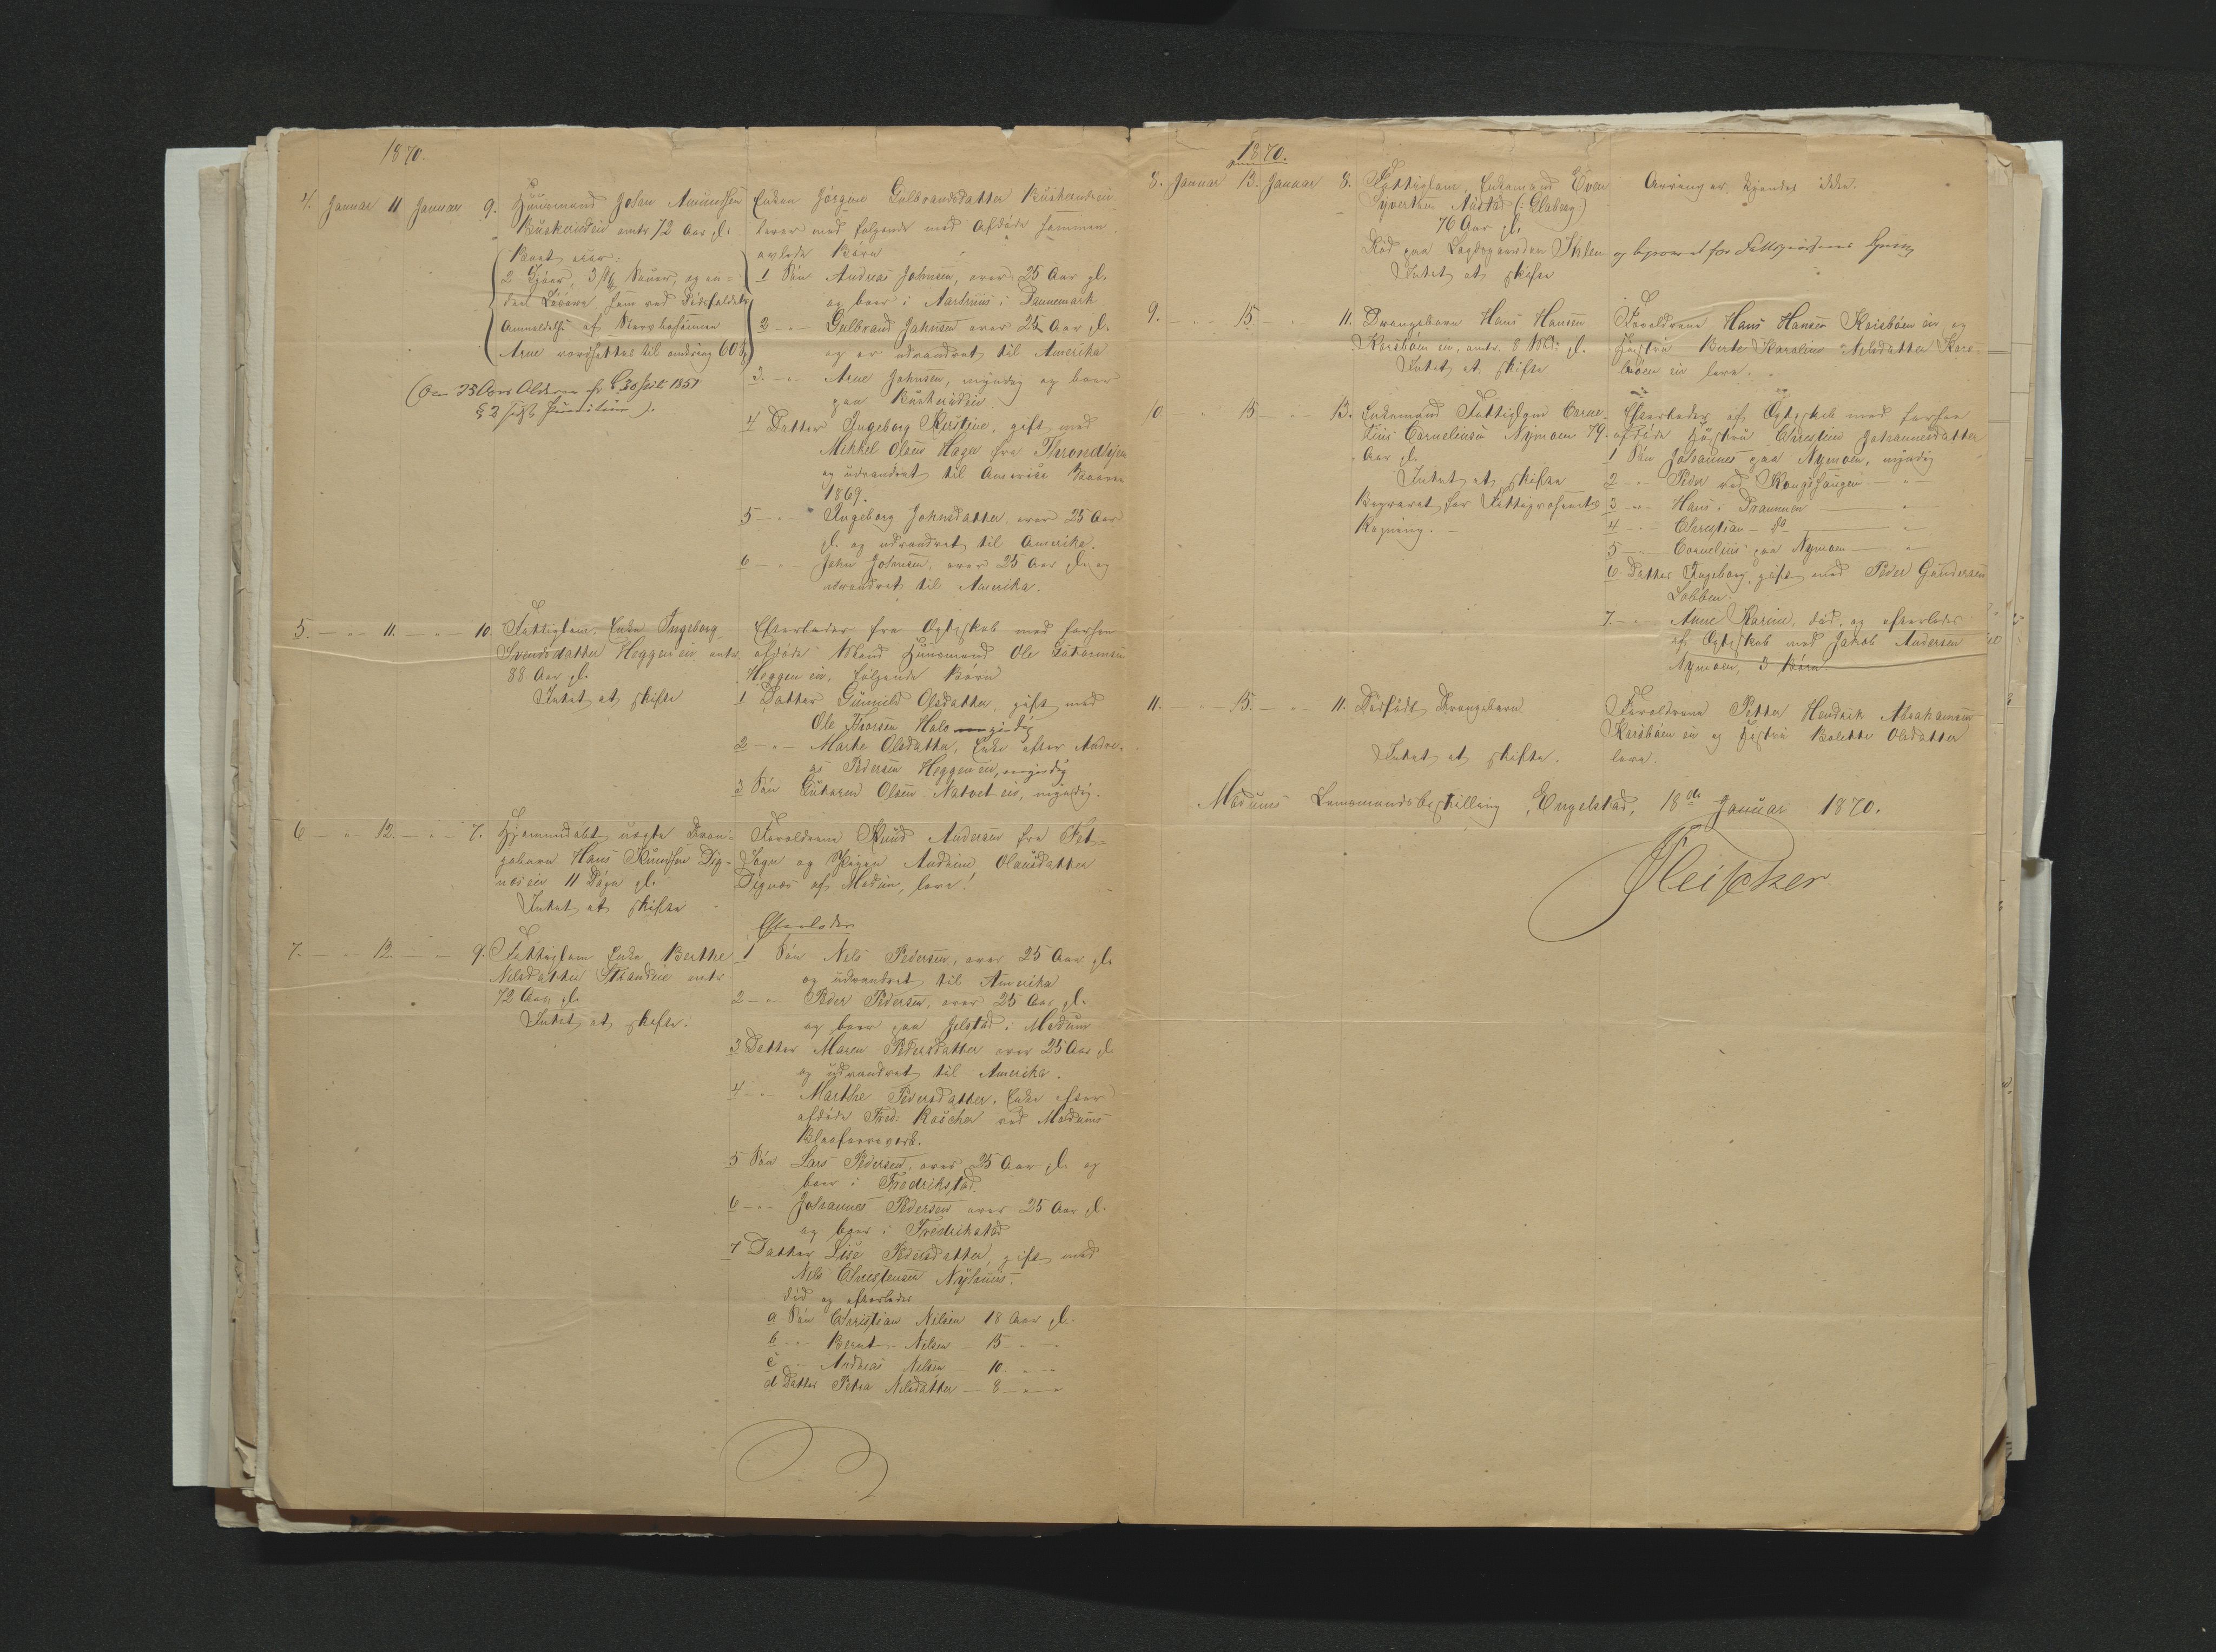 1870.
4. Januar 11 Januar 9. Huusmand John Amundsen
Buskerudein omtr 72 Aar gl.
Boet eier:
2 Kjöer, 3 Sauer, og en
deel Lösöre som ved Dödsfaldets
Anmeldelse af Stervbosönnen
Arne værdsattes til omkring 60
§ 2
Enken Jörgine Gulbrandsdatter Buskerudein
lever med fölgende med Afdöde sammen
avlede Börn
1 Sön Andreas Johnsen, over 25 Aar gl.
og boer i Aarhuus i Dannemark
2 -"- Gulbrand Johnsen over 25 Aar gl.
og er udvandret til Amerika
3. -"- Arne Johnsen, myndig og boer
paa Buskerudein
4 Datter Ingeborg Kirstine, gift med
Mikkel Olsen Haga fra Throndhjem
og udvandret til Amerika Vaaren
1869.
5 -"- Ingeborg Johnsdatter over 25 Aar
gl. og udvandret til Amerika.
6 -"- John Johnsen, over 25 Aar gl. og
udvandret til Amerika.
5. -"- 11. -"- 10. Fattiglem, Enke Ingeborg
Svendsdatter Heggen ein omtr
88 Aar gl.
Intet at skifte
Efterlader fra Ægteskab med forhen
afdöde Mand Huusmand Ole Gutormsen
Heggen ein, fölgende Börn
1 Datter Gunnild Olsdatter, gift med
Ole Iversen Hole myndig
2 -"- Marte Olsdatter, Enke efter Andre-
as Pedersen Heggen ein, myndig
3 Sön Gutorm Olsen Natvet ein, myndig.
6 -"- 12. -"- 7. Hjemmedöbt uægte Dren-
gebarn Hans Knudsen Dig-
næs ein 11 Dage gl.
Intet at skifte
Forældrene Knud Andersen fra
Sogn og Pigen Andrine Olausdatter
Dignæs af Modum, leve.
7. -"- 12. -"- 9. Fattiglem Enke Berthe
Nilsdatter Strandein omtr
72 Aar gl.
Intet at skifte.
Efterlader
1 Sön Nils Pedersen, over 25 Aar gl.
og udvandret til Amerika
2 -"- Peder Pedersen, over 25 Aar gl.
og boer paa Gulstad i Modum
3 Datter Maren Pedersdatter over 25 Aar gl.
og udvandret til Amerika.
4 -"- Marthe Pedersdatter, Enke efter
afdöde Fred: Roscher ved Modums
Blaafarveværk.
5 Sön Lars Pedersen, over 25 Aar gl. og
boer i Fredrikstad.
6 -"- Johannes Pedersen over 25 Aar gl.
og boer i Fredrikstad
7 Datter Lise Pedersdatter, gift med
Nils Christensen Nyhuus,
död og efterlader
a Sön Christian Nilsen 18 Aar gl.
b -"- Bernt Nilsen - 15 -"-
c -"- Andreas Nilsen - 10 -"-
d Datter Petra Nilsdatter - 8 -"-
1870.
8. Januar 13. Januar 8. Fattiglem, Enkemand Even
Syvertsen Austad
76 Aar gl.
Död paa Lægdegaarden Skalen og begravet for Fattigcassens Regning
Intet at skifte
Arvinger kjendes ikke.
9. -"- 15 -"- 11. Drengebarn Hans Hansen
Korsböen ein, omtr. 8 Md: gl.
Intet at skifte
Forældrene Hans Hansen Korsböen ein og
Hustru Berte Karoline Nilsdatter Kors-
böen ein leve.
10 -"- 15 -"- 13. Enkemand Fattiglem Corne-
lius Corneliusen Nymoen 79
Aar gl.
Intet at skifte
Begravet for Fattigvæsenets
Regning.
Efterlader af Ægteskab med forhen
afdöde Hustru Christine Johannesdatter
1 Sön Johannes paa Nymoen, myndig
2 -"- Peder ved Kongshaugen -"-
3 -"- Hans i Drammen -"-
4 -"- Christian - do -"-
5 -"- Cornelius paa Nymoen -"-
6 Datter Ingeborg, gift med Peder Gundersen
Lobben.
7. -"- Anne Karine, död, og efterlader
af Ægteskab med Jakob Andersen
Nymoen, 3 Börn.
11. -"- 15. -"- 11. Dödfödt Drengebarn
Intet at skifte.
Forældrene Petter Hendrik Abrahamsen
Korsböen ein og Hustru Bolette Olsdatter
leve.
Modums Lensmandsbestilling, Engelstad, 18de Januar 1870.
Fleischer